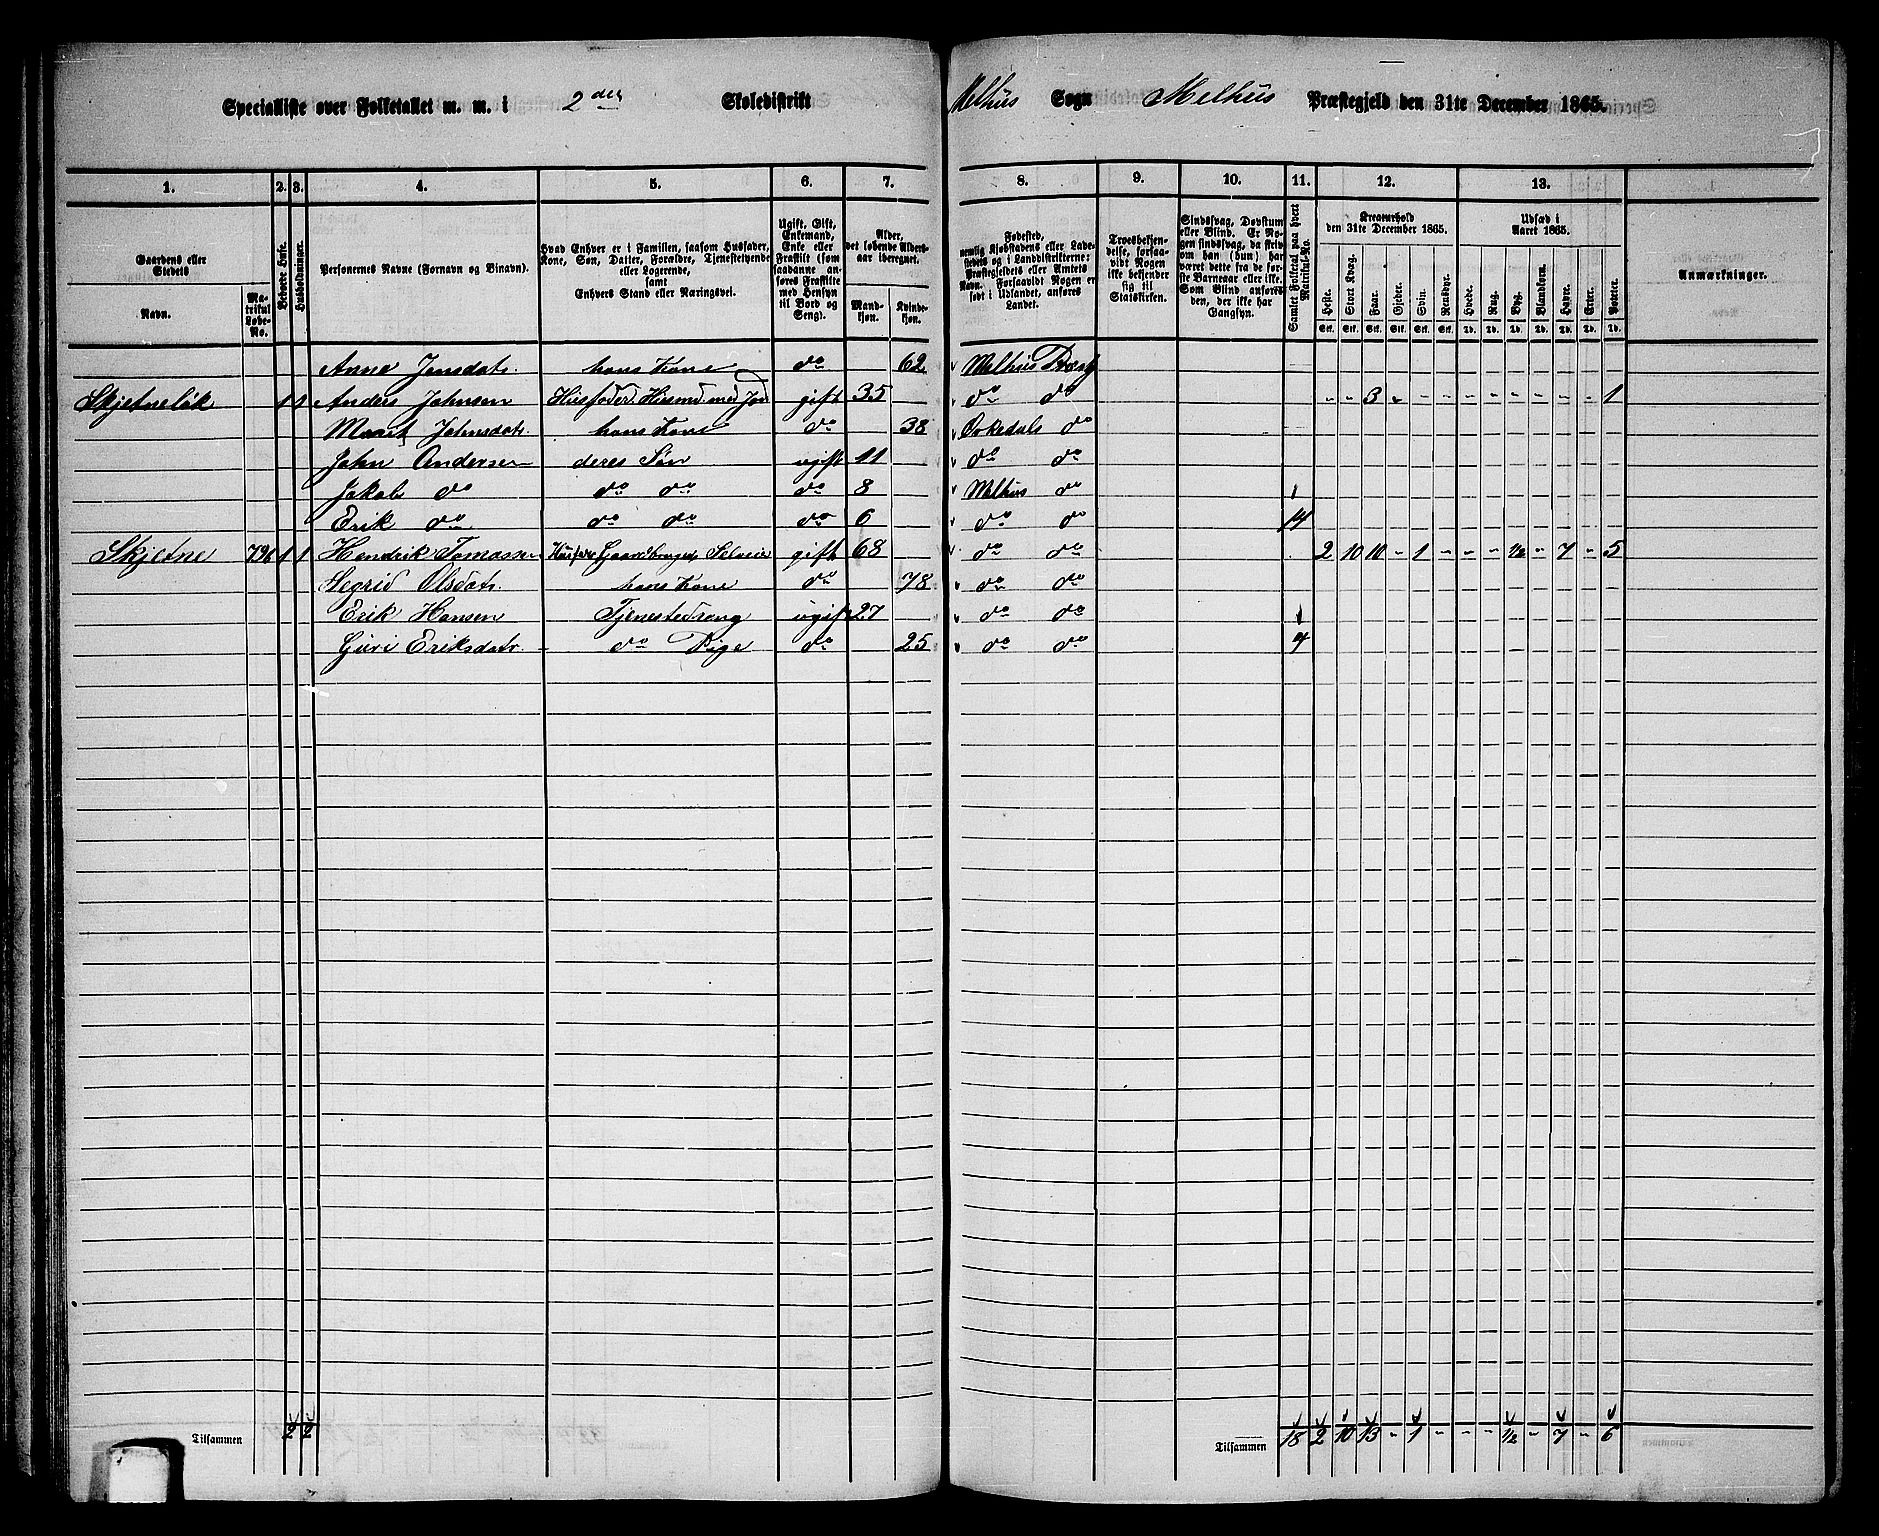 Specialliste over Folketallet m. m. i 2det Skoledistrikt Melhus Sogn Melhus Præstegjeld den 31te December 1865.
1. 2. 3. 4. 5. 6. 7. 8. 9. 10. 11. 12. 13.
Gaardens eller Stedets
Navn.
Matrikul Løbe-No.
Beboede Huse.
Husholdninger.
Personernes Navne (Fornavn og Binavn).
Hvad Enhver er i Familien, saasom Husfader, Kone, Søn, Datter, Forældre, Tjenestetyende eller Logerende, samt Enhvers Stand eller Næringsvei.
Ugift, Gift, Enkemand, Enke eller Fraskilt (som saadanne anføres Fraskilte med Hensyn til Bord og Seng).
Alder, det løbende Aldersaar iberegnet.
Mandkjøn.
Kvindekjøn.
Fødested, nemlig Kjøbstadens eller Ladestedets og i Landdistrikterne: Præstegjeldets eller Amtets Navn. Forsaavidt Nogen er født i Udlandet, anføres Landet.
Troesbekjendelse, forsaavidt Nogen ikke bekjender sig til Statskirken.
Sindssvag, Døvstum eller Blind. Er Nogen sindssvag, da skriv om han (hun) har været dette fra de første Barneaar eller ikke. Som Blind anføres den, der ikke har Gangsyn.
Samlet Folketal paa hvert Matrikul-No.
Kreaturhold den 31te December 1865.
Heste. Stort Kvæg. Faar. Gjeder. Svin. Rensdyr.
Udsæd i Aaret 1865.
Hvede. Rug. Byg. Blandkorn. Havre. Erter. Poteter.
Stk. Stk. Stk. Stk. Stk. Stk. Td. Td. Td. Td. Td. Td. Td.
Anmærkninger.
Anne Jensdatr. hans Kone do 62 Melhus Præstg
Skjetnelik 1 1 Anders Johnsen Husfader. Husmd. med Jord gift 35 do do " " 3 " - - - - - - - - 1
Marit Johnsdatr. hans Kone do 38 Orkedals do
John Andersen deres Søn ugift 11 do do
Jakob do do do do 8 Melhus do
Erik do do do do 6 do do 14
Skjetne 79b 1 1 Hendrik Tomassen Husf. Gaardbruger, Selveier gift 68 do do 2 10 10 - 1 - - - 1/2 - 7 - 5
Segrid Olsdatr. hans Kone do 78 do do
Erik Hansen Tjenestedreng ugift 27 do do
Guri Eriksdatr. do Pige do 25 do do 4
Tilsammen 2 2 Tilsammen 18 2 10 13 - 1 - - - 1/2 - 7 - 6